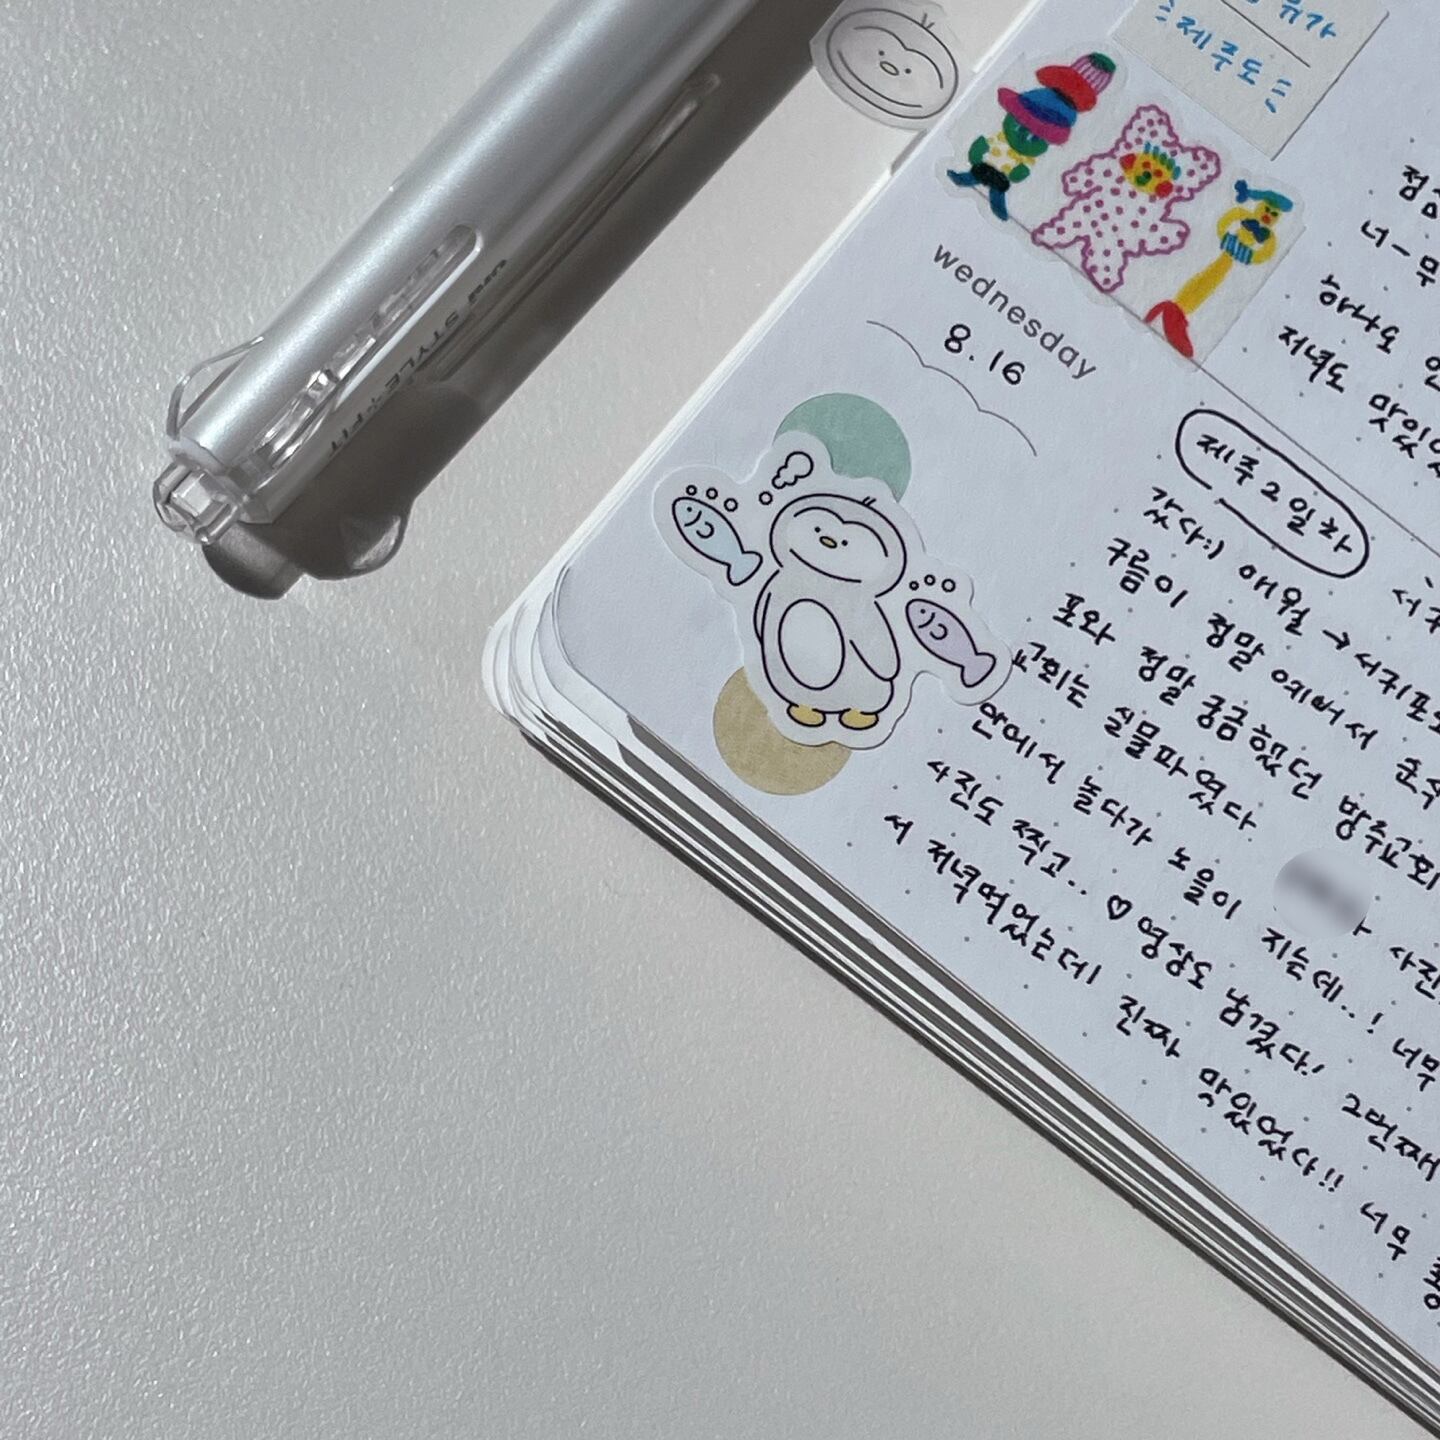 제주도
너-무
하나도
저녁도 맛있
wednesday
8.16
제주2일차
갔다:) 애월 → 서귀포
구름이 정말 예뻐서
포와 정말 궁금했던 방주교회
교회는 실물파였다 사진
안에서 놀다가 노을이 지는데..! 너무
사진도 찍고..♡ 영상도 남겼다! 2번째
서 저녁먹었는데 진짜 맛있었다!! 너무
uni STYLE FIT